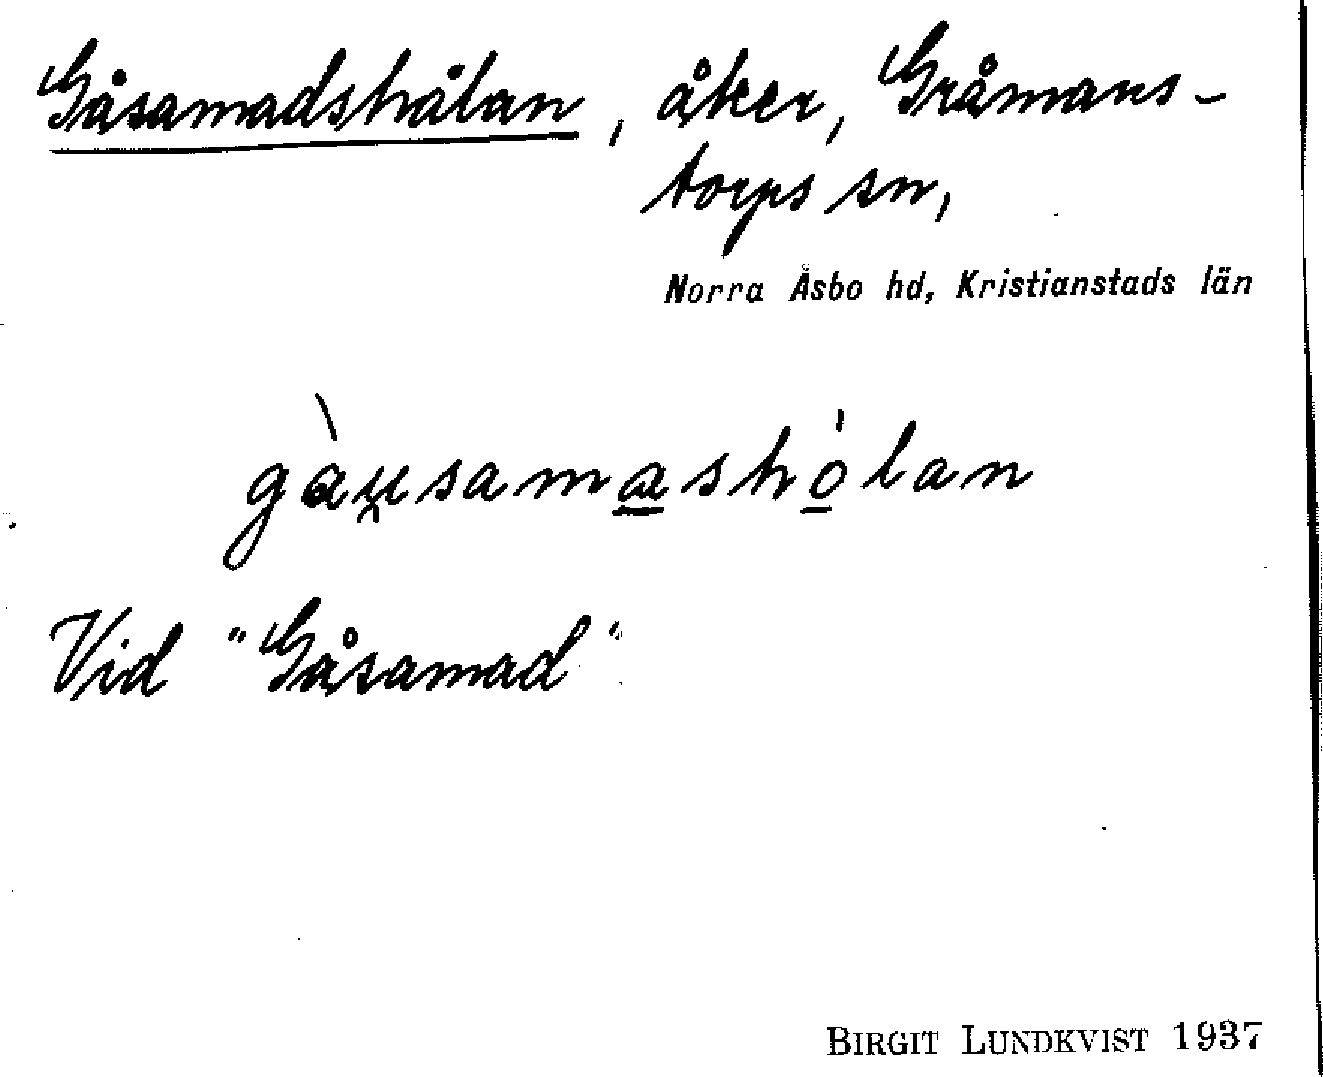 Gåsamadshålan, åker, Gråmans-
torps sn,
Norra Åsbo hd, Kristianstads län
gàu̯samas̱hólan
Vid "Gåsamad"
BIRGIT LUNDKVIST 1937